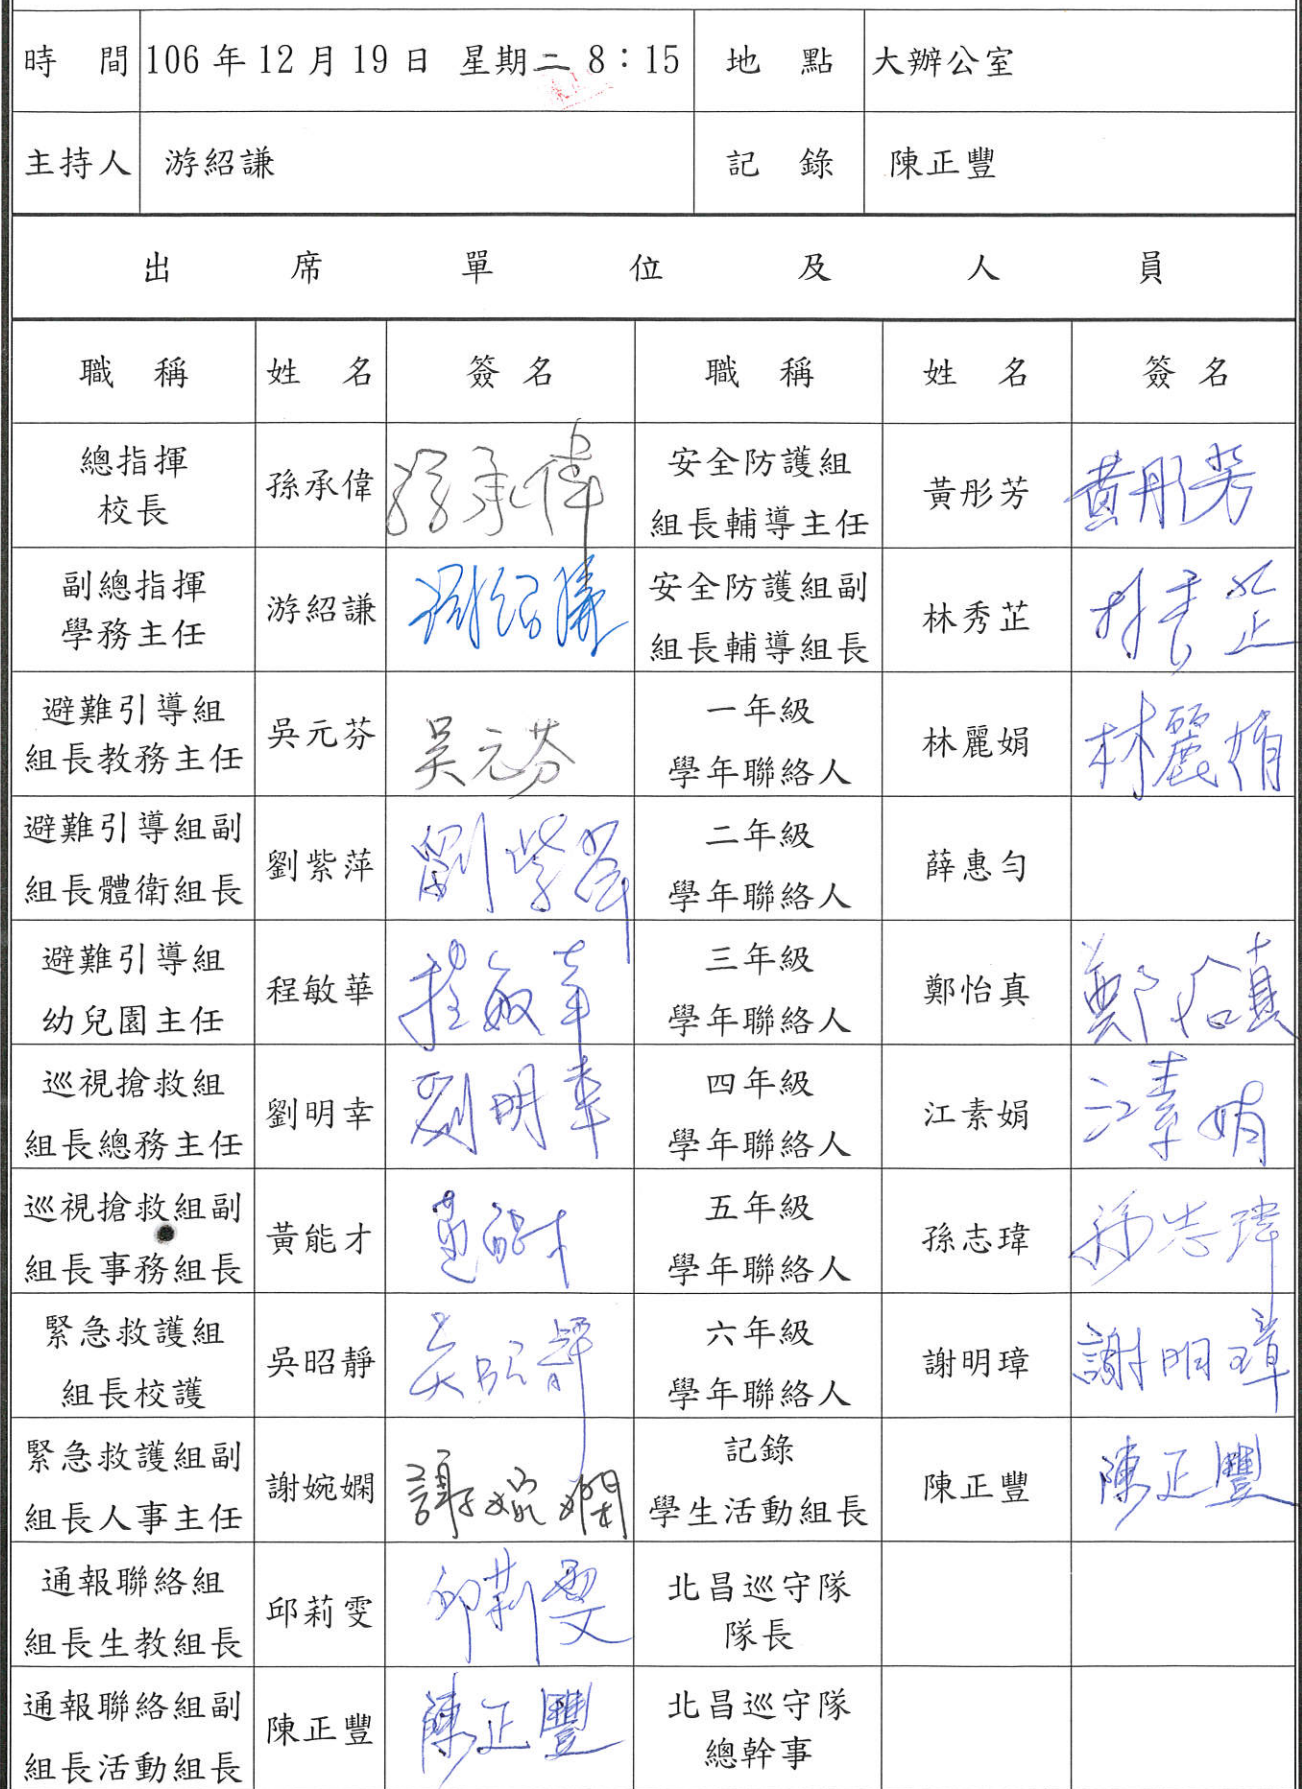 時 間 106 年 12 月 19 日 星期二 8：15 地 點 大辦公室
主持人 游紹謙 記 錄 陳正豐
出 席 單 位 及 人 員
職 稱 姓 名 簽 名 職 稱 姓 名 簽 名
總指揮
校長
孫承偉
孫承偉
安全防護組
組長輔導主任
黃彤芳
黃彤芳
副總指揮
學務主任
游紹謙
游紹謙
安全防護組副
組長輔導組長
林秀芷
林秀芷
避難引導組
組長教務主任
吳元芬
吳元芬
一年級
學年聯絡人
林麗娟
林麗娟
避難引導組副
組長體衛組長
劉紫萍
劉紫萍
二年級
學年聯絡人
薛惠勻
避難引導組
幼兒園主任
程敏華
程敏華
三年級
學年聯絡人
鄭怡真
鄭怡真
巡視搶救組
組長總務主任
劉明幸
劉明幸
四年級
學年聯絡人
江素娟
江素娟
巡視搶救組副
組長事務組長
黃能才
黃能才
五年級
學年聯絡人
孫志瑋
孫志瑋
緊急救護組
組長校護
吳昭靜
吳昭靜
六年級
學年聯絡人
謝明璋
謝明璋
緊急救護組副
組長人事主任
謝婉嫻
謝婉嫻
記錄
學生活動組長
陳正豐
陳正豐
通報聯絡組
組長生教組長
邱莉雯
邱莉雯
北昌巡守隊
隊長
通報聯絡組副
組長活動組長
陳正豐
陳正豐
北昌巡守隊
總幹事